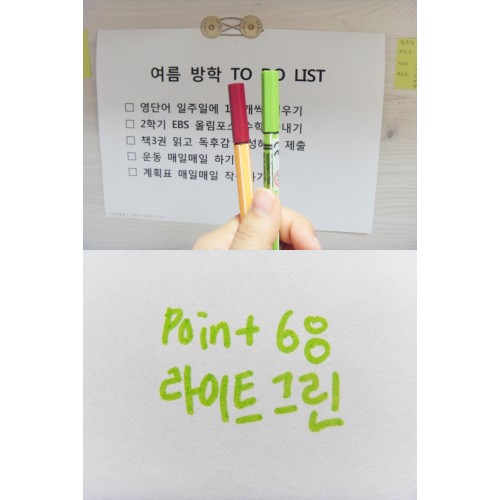 여름 방학 TO DO LIST
영단어 일주일에
2학기 EBS 올림포스 수학
책3권 읽고 독후감 제출
운동 매일매일 하기
계획표 매일매일
Point 68
라이트 그린